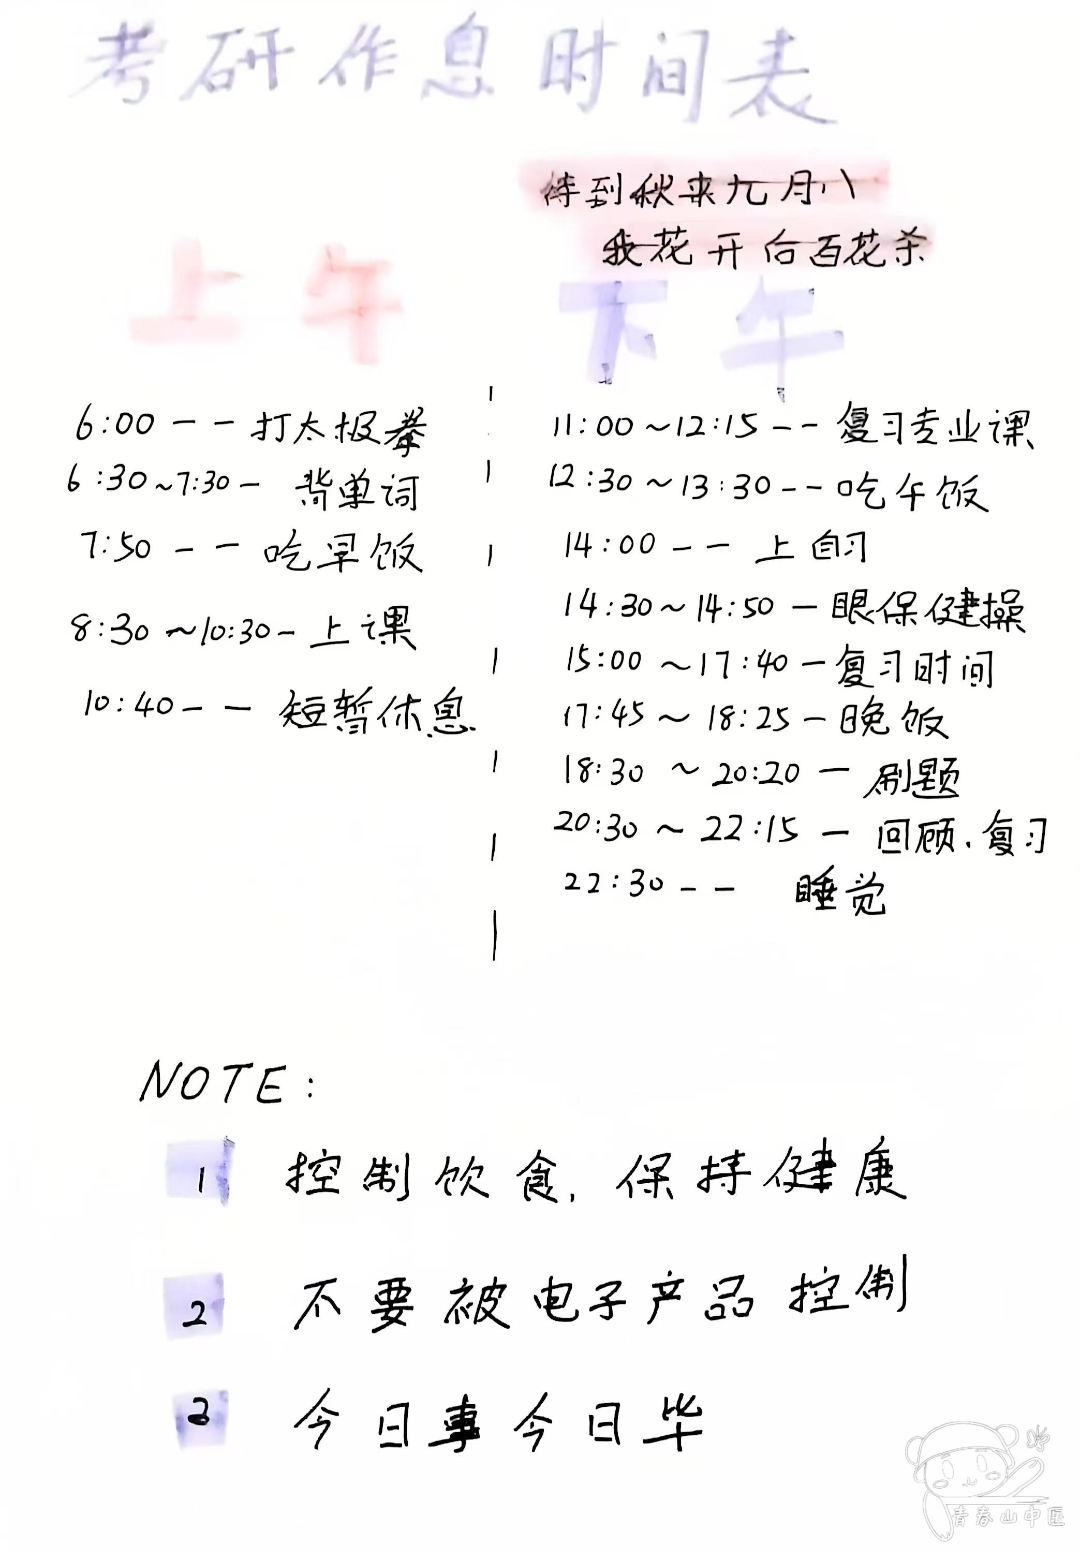 考研作息时间表
待到秋来九月八
我花开后百花杀
上午
6:00 — — 打太极拳
6:30~7:30 — 背单词
7:50 — — 吃早饭
8:30~10:30 — 上课
10:40 — — 短暂休息
下午
11:00~12:15 — — 复习专业课
12:30~13:30 — — 吃午饭
14:00 — — 上自习
14:30~14:50 — 眼保健操
15:00~17:40 — 复习时间
17:45~18:25 — 晚饭
18:30~20:20 — 刷题
20:30~22:15 — 回顾、复习
22:30 — — 睡觉
NOTE:
1 控制饮食，保持健康
2 不要被电子产品控制
3 今日事今日毕
青春山中医